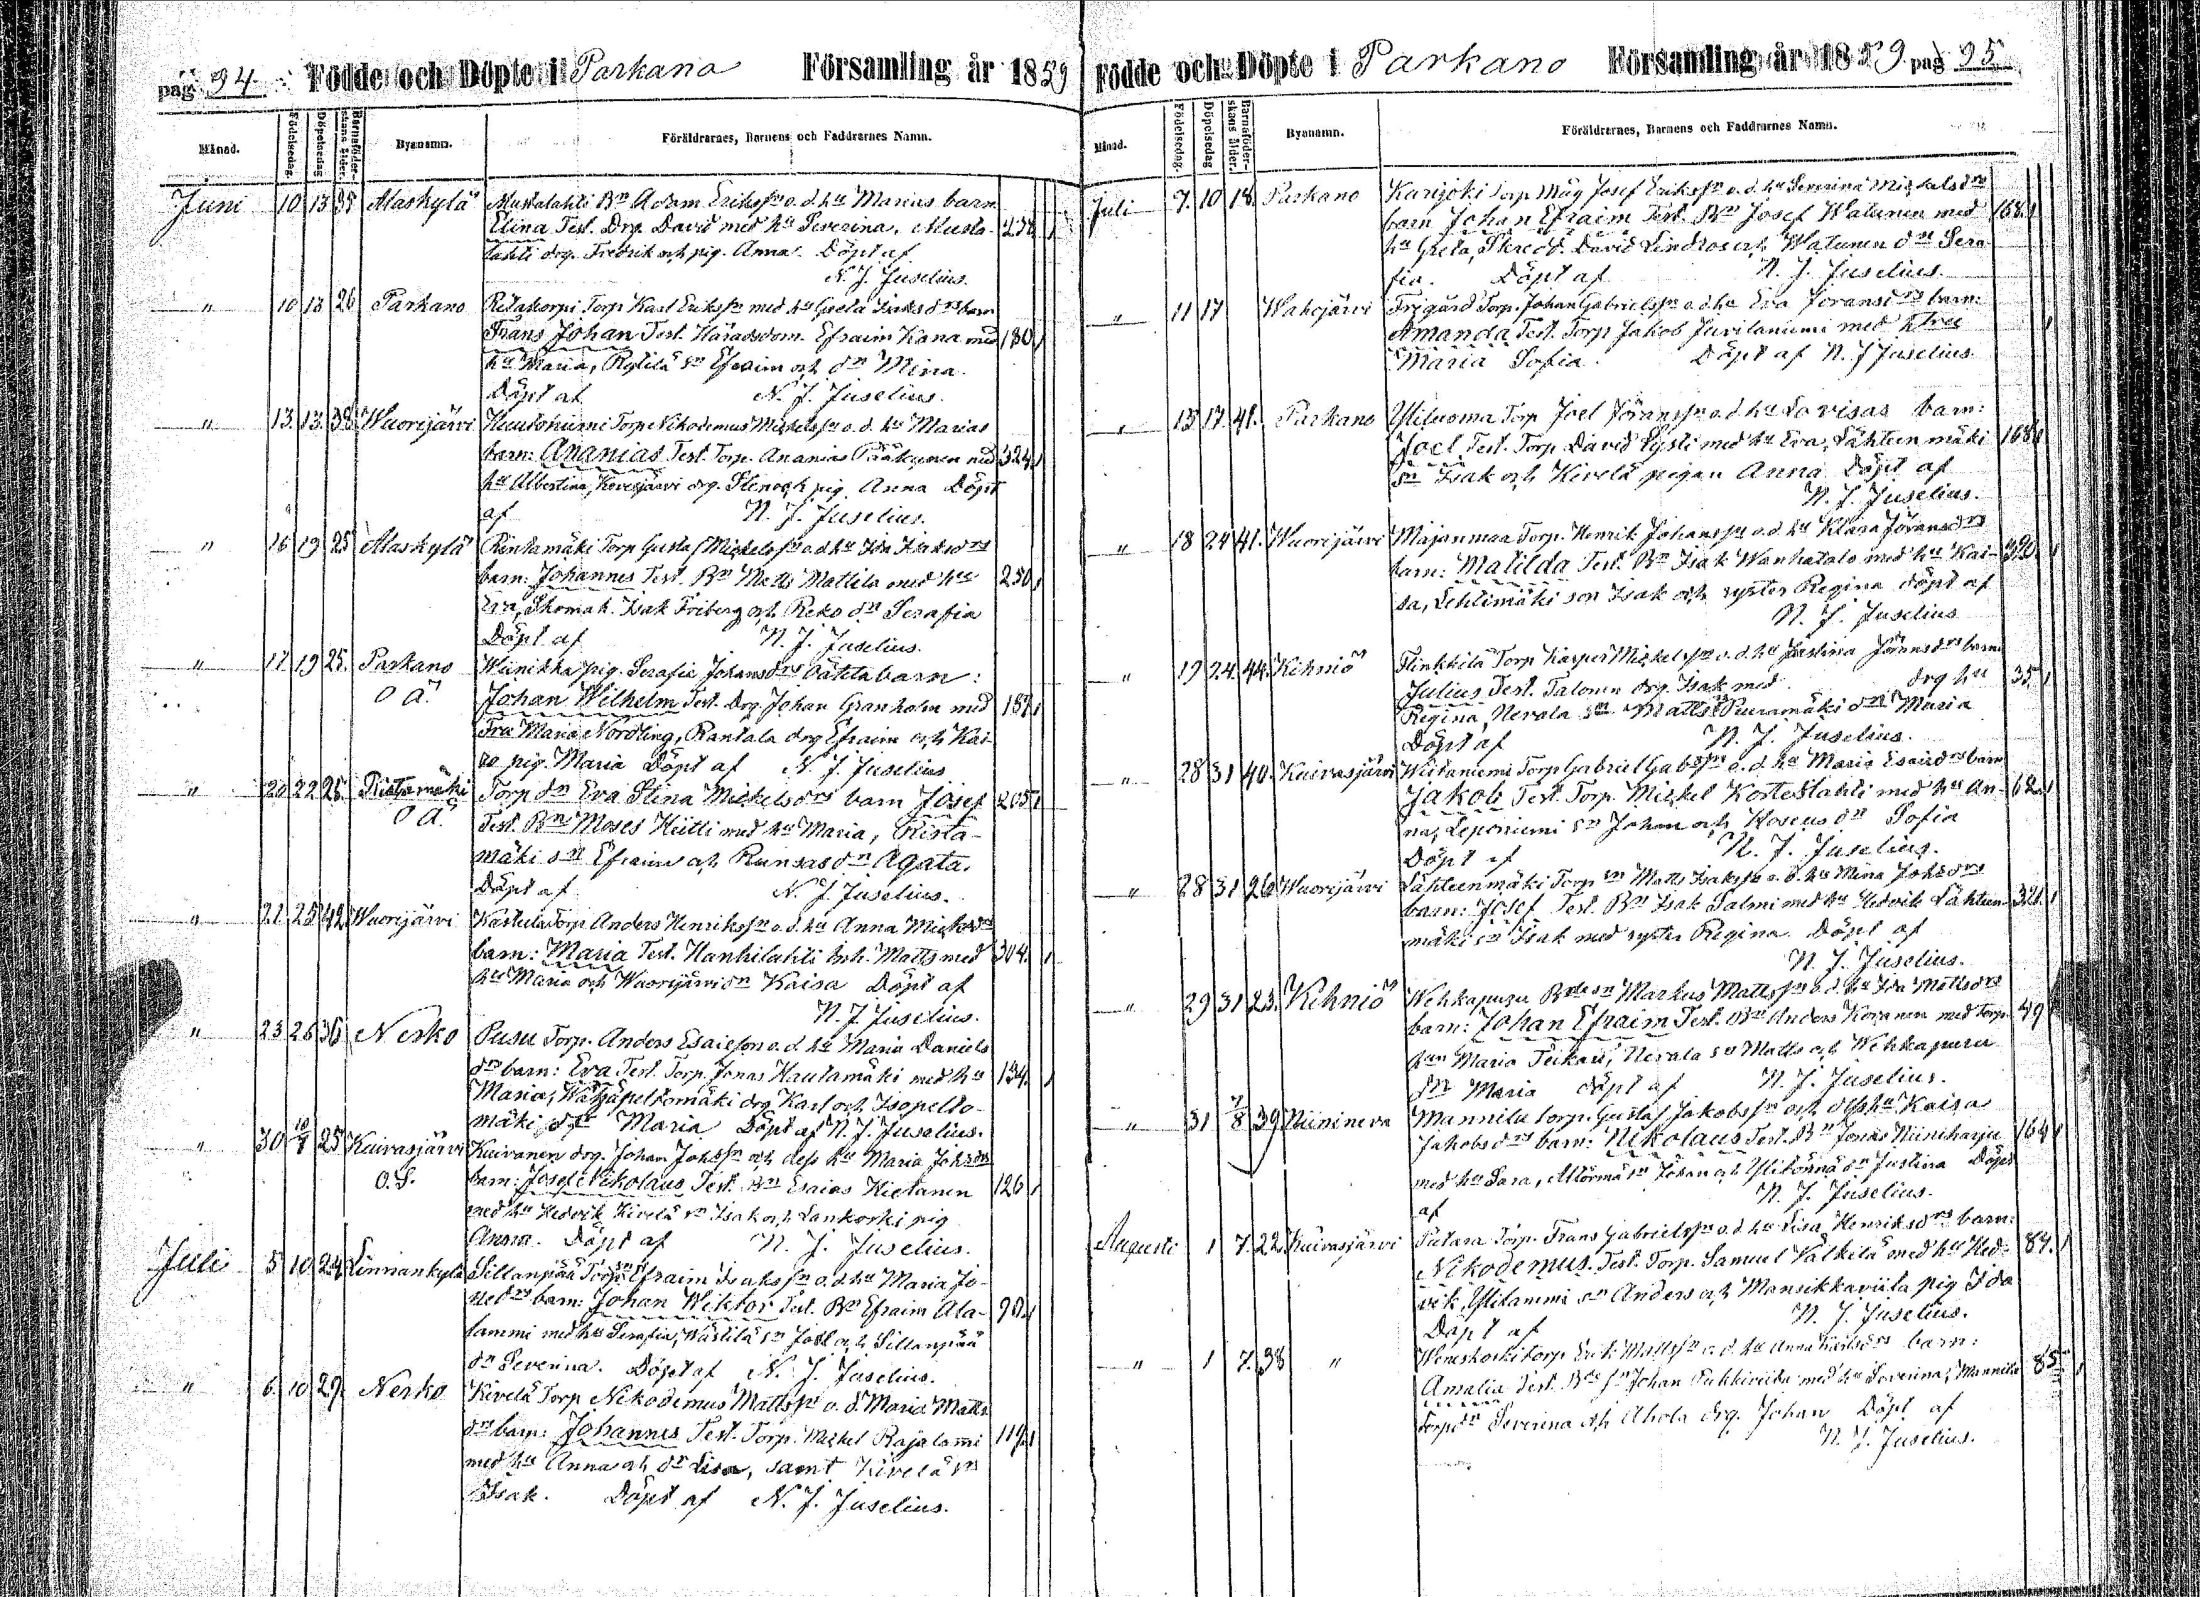 pag. 94. Födde och Döpte i Parkano Församling år 1859
Månad. Födelsedag. Döpelsedag Barnaföderskans ålder. Byanamn. Föräldrarnes, Barnens och Faddrarnes Namn.
Juni 10 13 35 Alaskylä Mustalahti Bn Adam Erikssn o. d. hu Marias barn
Elina Test. Drg. David med hu Severina, Musta- 238
lahti drg. Fredrik och pig. Anna. Döpt af
N. J. Juselius.
" 10 13 26 Parkano Ritakorpi Torp Karl Erikssn med hu Greta Isaksdrs barn
Frans Johan Test. Häradsdom. Efraim Kana med 180
hu Maria, sn Efraim och dn Mina.
Döpt af N. J. Juselius.
" 13. 13. 38. Wuorijärvi Torp Nikodemus Mickelssn o. d. hu Marias
barn: Ananias Test. Torp. Ananias med 324
hu Albertina, drg. Sten och pig. Anna Döpt
af N. J. Juselius.
" 16 19 25 Alaskylä Rintamäki Torp Gustaf Mickelssn o d hu Ida Isaksdrs
barn: Johannes Test. Bn Matts Mattila med hu 250
Eva, Skomak. Isak Friberg och Reko dn Serafia
Döpt af N. J. Juselius.
" 17. 19 25. Parkano Wanikka pig. Serafia Johansdrs oäkta barn:
O Ä. Johan Wilhelm Test. Drg Johan Granholm med 187
Fru Maria Nordling, Rantala drg Efraim och Kai-
ro pig. Maria Döpt af N. J. Juselius
" 20 22 25. Ristamäki Torp dn Eva Stina Mickelsdrs barn Josef 205
O Ä. Test. Bn Moses Hiitti med hu Maria, Rista-
mäki sn Efraim och Runsas dn Agata.
Döpt af N. J. Juselius.
" 21. 25 42 Wuorijärvi Torp Anders Henrikssn o. d. hu Anna
barn: Maria Test. Hanhilahti Inh. Matts med 304.
hu Maria och Wuorijärvi dn Kaisa Döpt af
N. J. Juselius.
" 23 26 36 Nerko Pusu Torp. Anders Esaiesson o. d. hu Maria Daniels
drs barn: Eva Test. Torp. Jonas Hautamäki med hu 134.
Maria, drg Karl och Isopelto-
mäki dn Maria Döpt af N. J. Juselius.
" 30 10/7 25 Kuivasjärvi Kuivanen drg. Johan Johssn och dess hu Maria Johsdrs
O. S. barn: Josef Nikolaus Test. Bn Esaias Kietanen 126
med hu Hedvik Kivelä sn Isak och Lankoski pig
Anna. Döpt af N. J. Juselius.
Juli 5 10 24 Linnankylä Sillanpää Torp. sn Efraim Isakssn o. d. hu Maria Jo-
barn: Johan Wiktor Test. Bn Efraim Ala- 90.
lammi med hu Serafia, Wästilä sn Joel och Sillanpää
dn Severina. Döpt af N. J. Juselius.
" 6. 10 29. Nerko Kivelä Torp Nikodemus Mattssn o. d. Maria Matts
drs barn: Johannes Test. Torp. Mickel Rajalami 119
med hu Anna och dn Lisa, samt Kivelä sn
Isak. Döpt af N. J. Juselius.
Födde och Döpte i Parkano Församling år 1859. pag 95
Månad. Födelsedag. Döpelsedag Barnaföderskans ålder. Byanamn. Föräldrarnes, Barnens och Faddrarnes Namn.
Juli 7. 10 18. Parkano Karijoki Torp Måg Josef Erikssn o. d. hu Severina Mickelsdrs
barn Johan Efraim Test. Bn Josef Watunen med 168.
hu Greta, Skredd. David Lindros och Watunen dn Sera-
fia. Döpt af N. J. Juselius.
" 11 17 Wahojärvi Frigård Torp. Johan Gabrielssn o d hu Eva Jöransdrs barn:
Amanda Test. Torp Jakob Juvilaniemi med htru
Maria Sofia. Döpt af N. J Juselius
" 13 17. 41. Parkano Yliluoma Torp Joel Jöranssn o. d. hu Lovisas barn:
Joel, Test. Torp David Lysti med hu Eva, Lähteenmäki 168
sn Isak och Kivelä pigan Anna Döpt af
N. J. Juselius.
" 18 24 41. Wuorijärvi Majanmaa Torp. Henrik Johanssn o. d. hu Klara Jöransdrs
barn: Matilda Test. Bn Isak Wanhatalo med hu Kai- 320
sa, Lehtimäki son Isak och syster Regina döpt af
N. J. Juselius
" 19 24. 44. Kihniö Flinkkilä Torp Kasper Mickelssn o. d. hu Justina Jöransdrs barn
Julius Test. Talonen drg. Isak med drg hu 35.
Regina, Nerala sn Matts Peuramäki dn Maria
Döpt af N. J. Juselius.
" 28 31 40. Kuivasjärvi Wiitaniemi Torp Gabriel Gabssn o. d. hu Maria Esaiedrs barn
Jakob Test. Torp. Mickel Kortetlahti med hu An- 62.
na, Leponiemi sn Johan och Koseus dn Sofia
Döpt af N. J. Juselius.
" 28 31 26 Wuorijärvi Lähteenmäki Torp sn Matts Isakssn o. d. hu Mina Johsdrs
barn: Josef Test. Bn Isak Salmi med hu Hedvik Lähteen- 321.
mäki sn Isak med syster Regina. Döpt af
N. J. Juselius.
" 29 31 23. Kihniö Wehkapuru Bde sn Markus Mattssn o. d. hu Ida Mattsdrs
barn: Johan Efraim Test. Bn Anders Koranen med Torp. 49
Maria Nerala sn Matts och Wehkapuru
dn Maria döpt af N. J. Juselius.
" 31 7/8 39 Niinineva Mannila torp. Gustaf Jakobssn och dess hu Kaisa
Jakobsdrs barn: Nikolaus Test. Bn Jonas Niiniharju 164
med hu Sara, Alatörmä sn Johan och Ylitörmä dn Justina Döpt
af N. J. Juselius.
Augusti 1 7. 22. Kuivasjärvi Torp. Frans Gabrielssn o. d. hu Lisa Henriksdrs barn:
Nikodemus. Test. Torp. Samuel Välkilä med hu Hed- 84.
vik, Ylilammi sn Anders och Mansikkaviita pig Ida
Döpt af N. J. Juselius.
" 1 7. 38 " Weneskoski torp Erik Mattssn o. d. hu Anna Karlsdrs barn:
Amalia Test. Bde sn Johan med hu Severina, Mannila 85
torp dn Severina och Ahola drg. Johan Döpt af
N. J. Juselius.